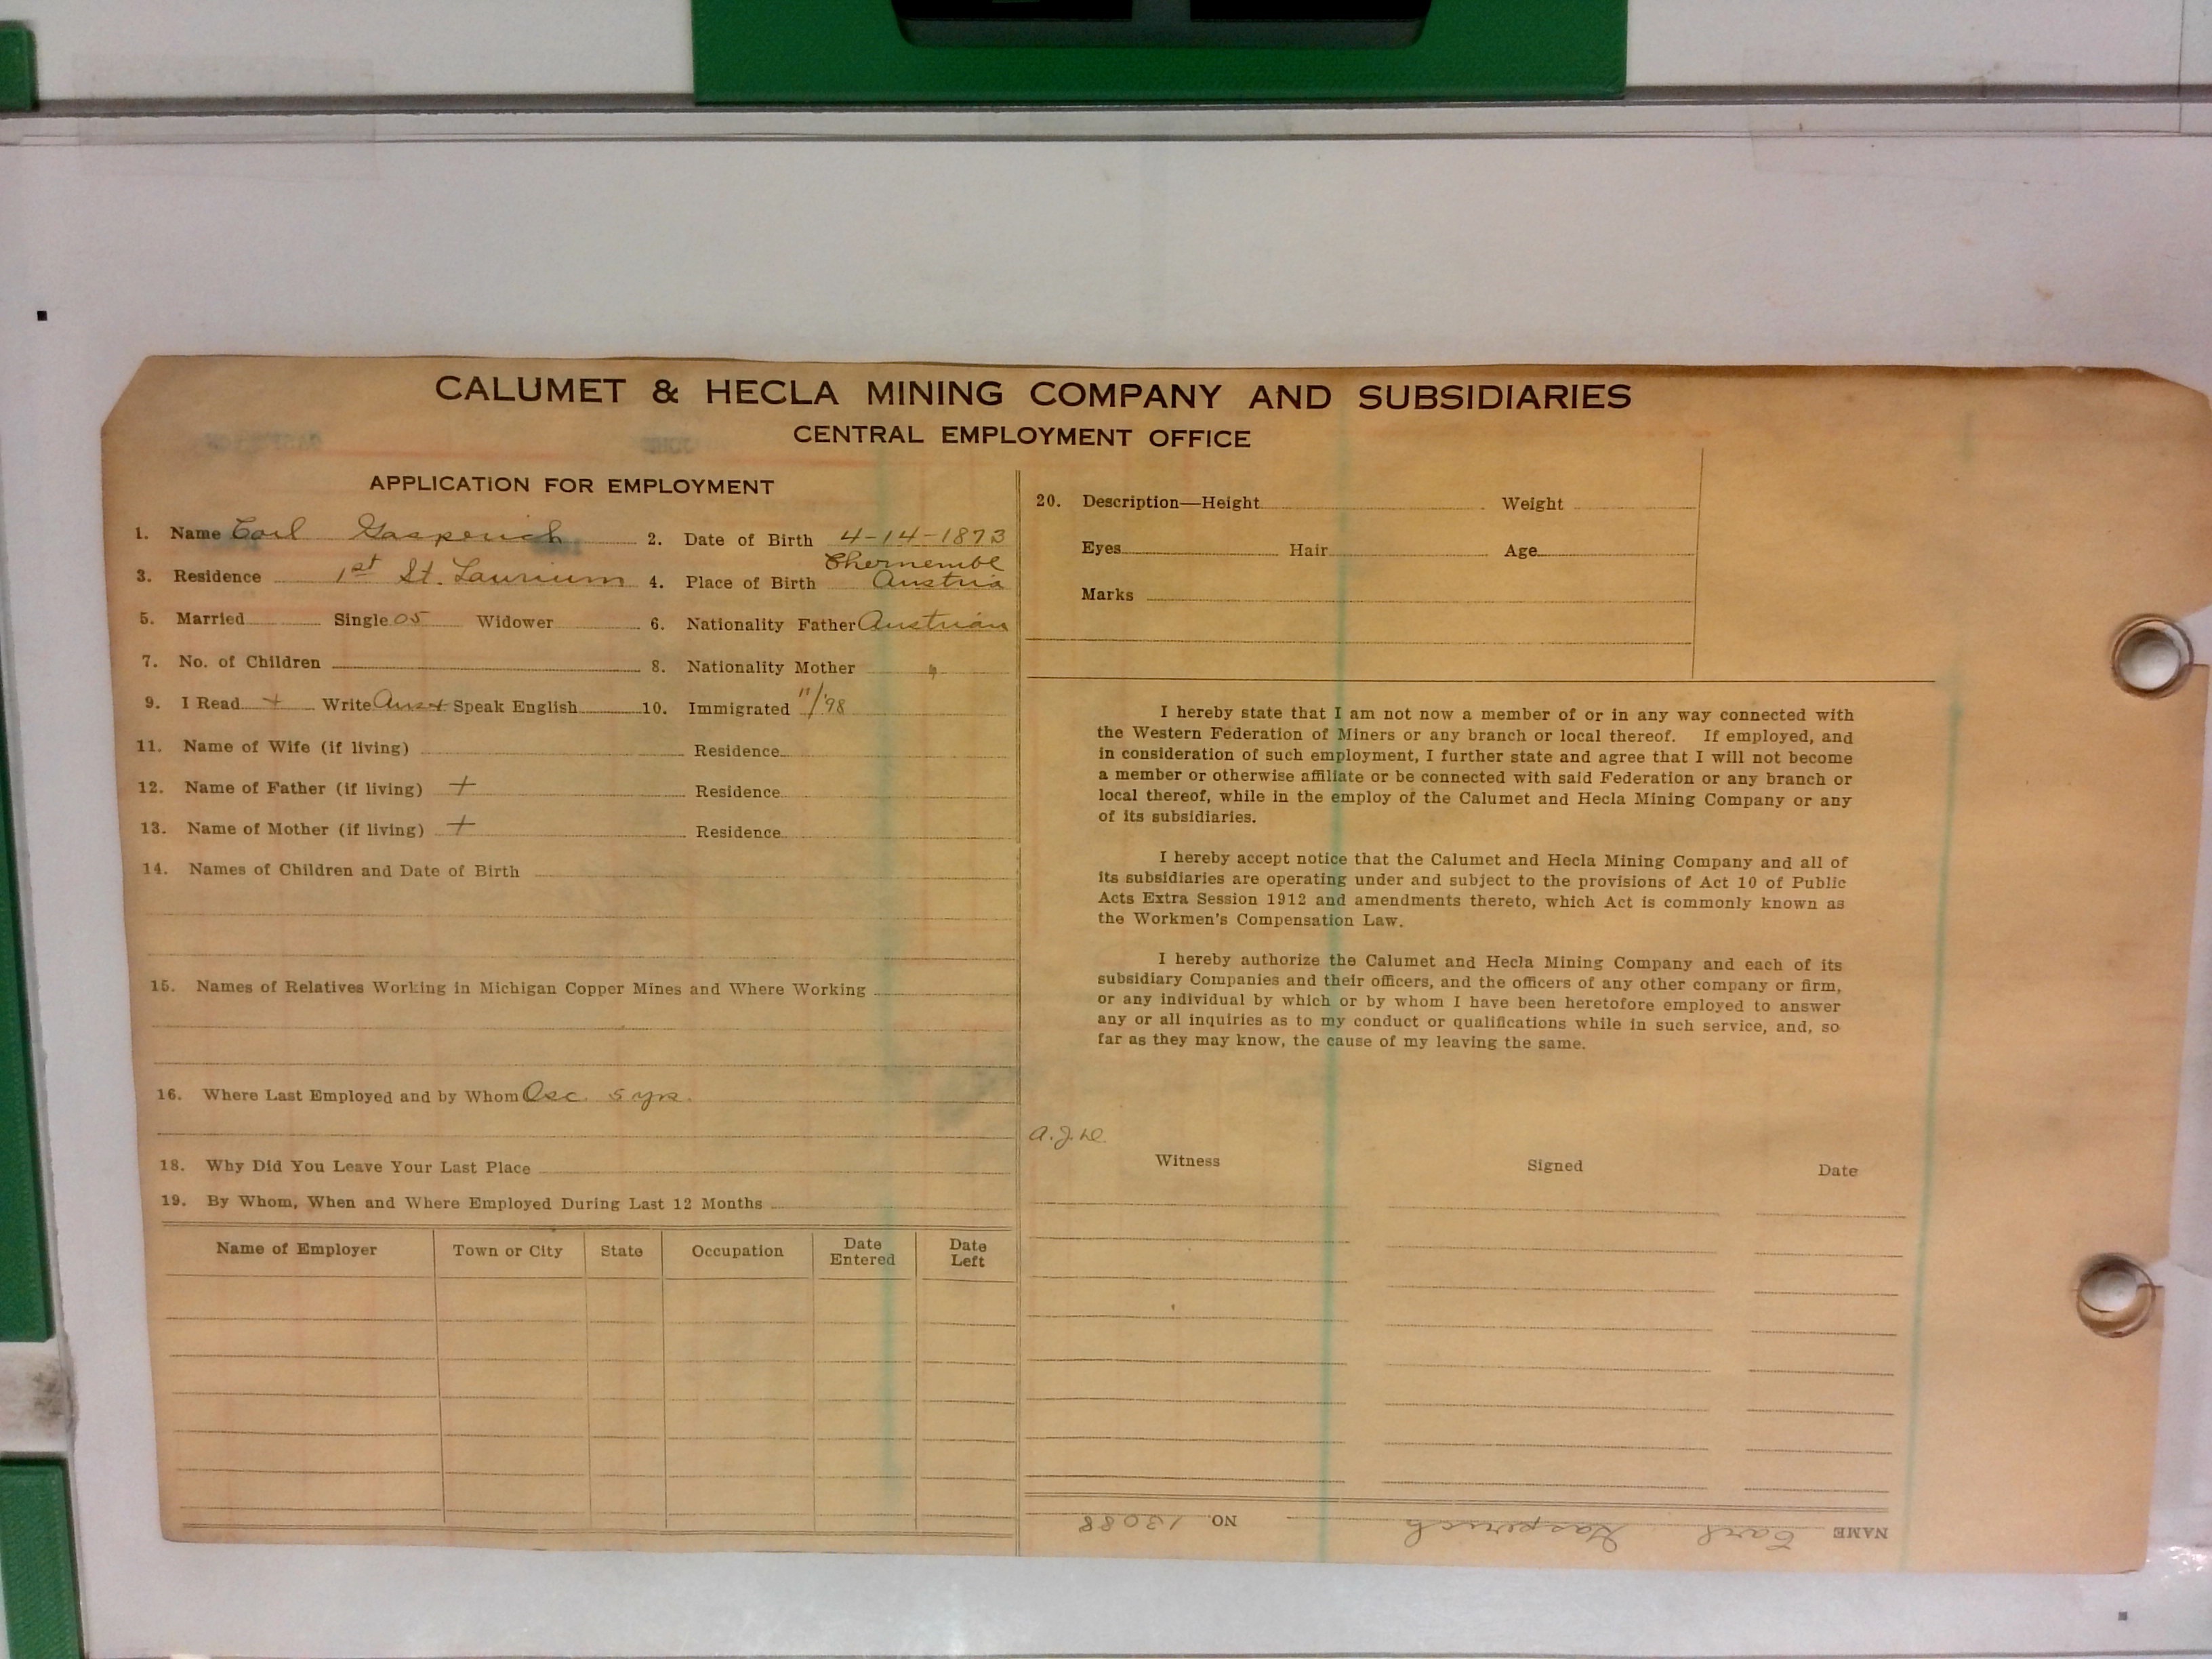 CALUMET & HECLA MINING COMPANY AND SUBSIDIARIES
CENTRAL EMPLOYMENT OFFICE
APPLICATION FOR EMPLOYMENT
1. Name Carl Gasperich 2. Date of Birth 4-14-1873
3. Residence 1st St. Laurium 4. Place of Birth Chernembl Austria
5. Married Single 05 Widower 6. Nationality Father Austrian
7. No. of Children 8. Nationality Mother "
9. I Read + Write Aust Speak English 10. Immigrated 11/'98
11. Name of Wife (if living) Residence
12. Name of Father (if living) + Residence
13. Name of Mother (if living) + Residence
14. Names of Children and Date of Birth
15. Names of Relatives Working in Michigan Copper Mines and Where Working
16. Where Last Employed and by Whom Osc. 5 yrs.
18. Why Did You Leave Your Last Place
19. By Whom, When and Where Employed During Last 12 Months
Name of Employer Town or City State Occupation Date Entered Date Left
20. Description—Height Weight
Eyes Hair Age
Marks
I hereby state that I am not now a member of or in any way connected with
the Western Federation of Miners or any branch or local thereof. If employed, and
in consideration of such employment, I further state and agree that I will not become
a member or otherwise affiliate or be connected with said Federation or any branch or
local thereof, while in the employ of the Calumet and Hecla Mining Company or any
of its subsidiaries.
I hereby accept notice that the Calumet and Hecla Mining Company and all of
its subsidiaries are operating under and subject to the provisions of Act 10 of Public
Acts Extra Session 1912 and amendments thereto, which Act is commonly known as
the Workmen's Compensation Law.
I hereby authorize the Calumet and Hecla Mining Company and each of its
subsidiary Companies and their officers, and the officers of any other company or firm,
or any individual by which or by whom I have been heretofore employed to answer
any or all inquiries as to my conduct or qualifications while in such service, and, so
far as they may know, the cause of my leaving the same.
Witness Signed Date
NAME Carl Gasperich NO. 13088